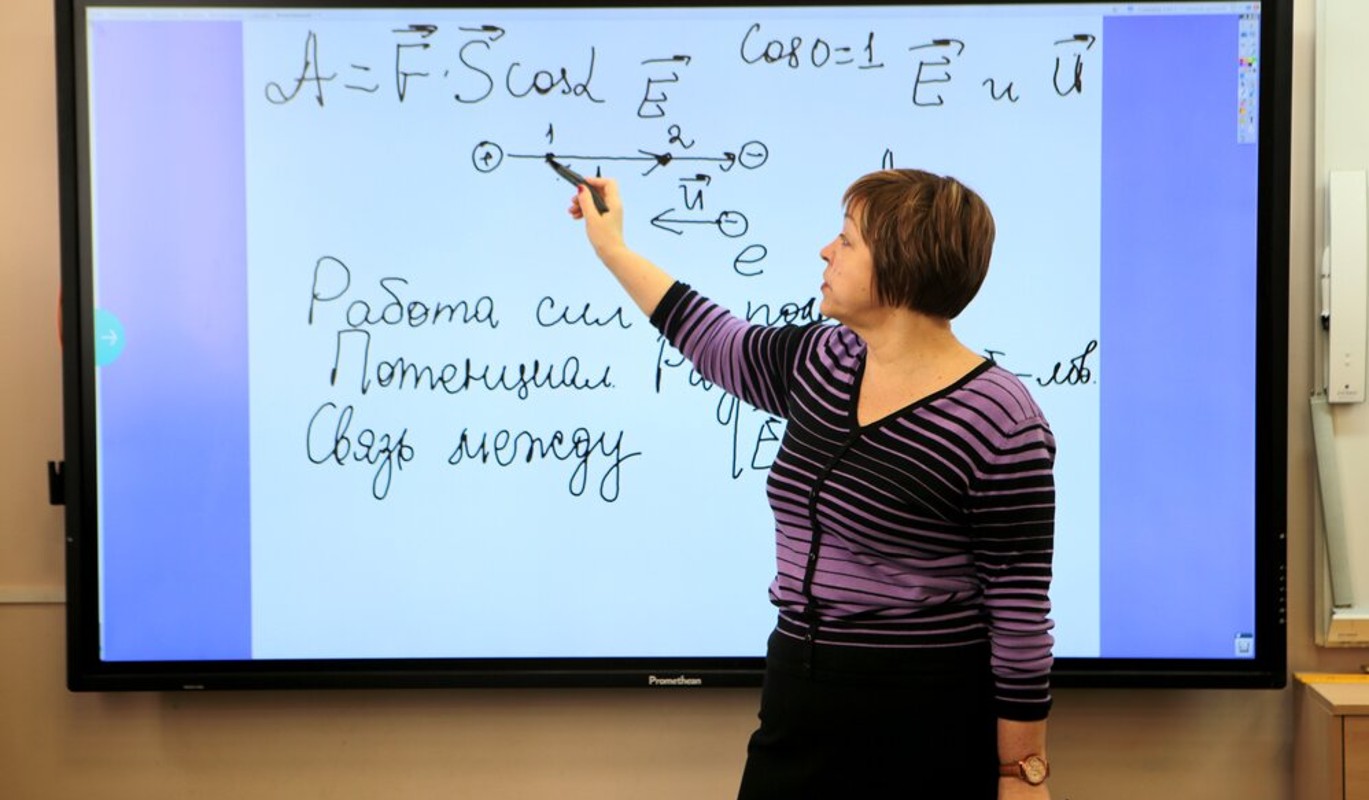 A = F · S cosα E cos 0 = 1 E и U
1 2
+ −
U
−
e
Работа сил
Потенциал.
Связь между E
Promethean